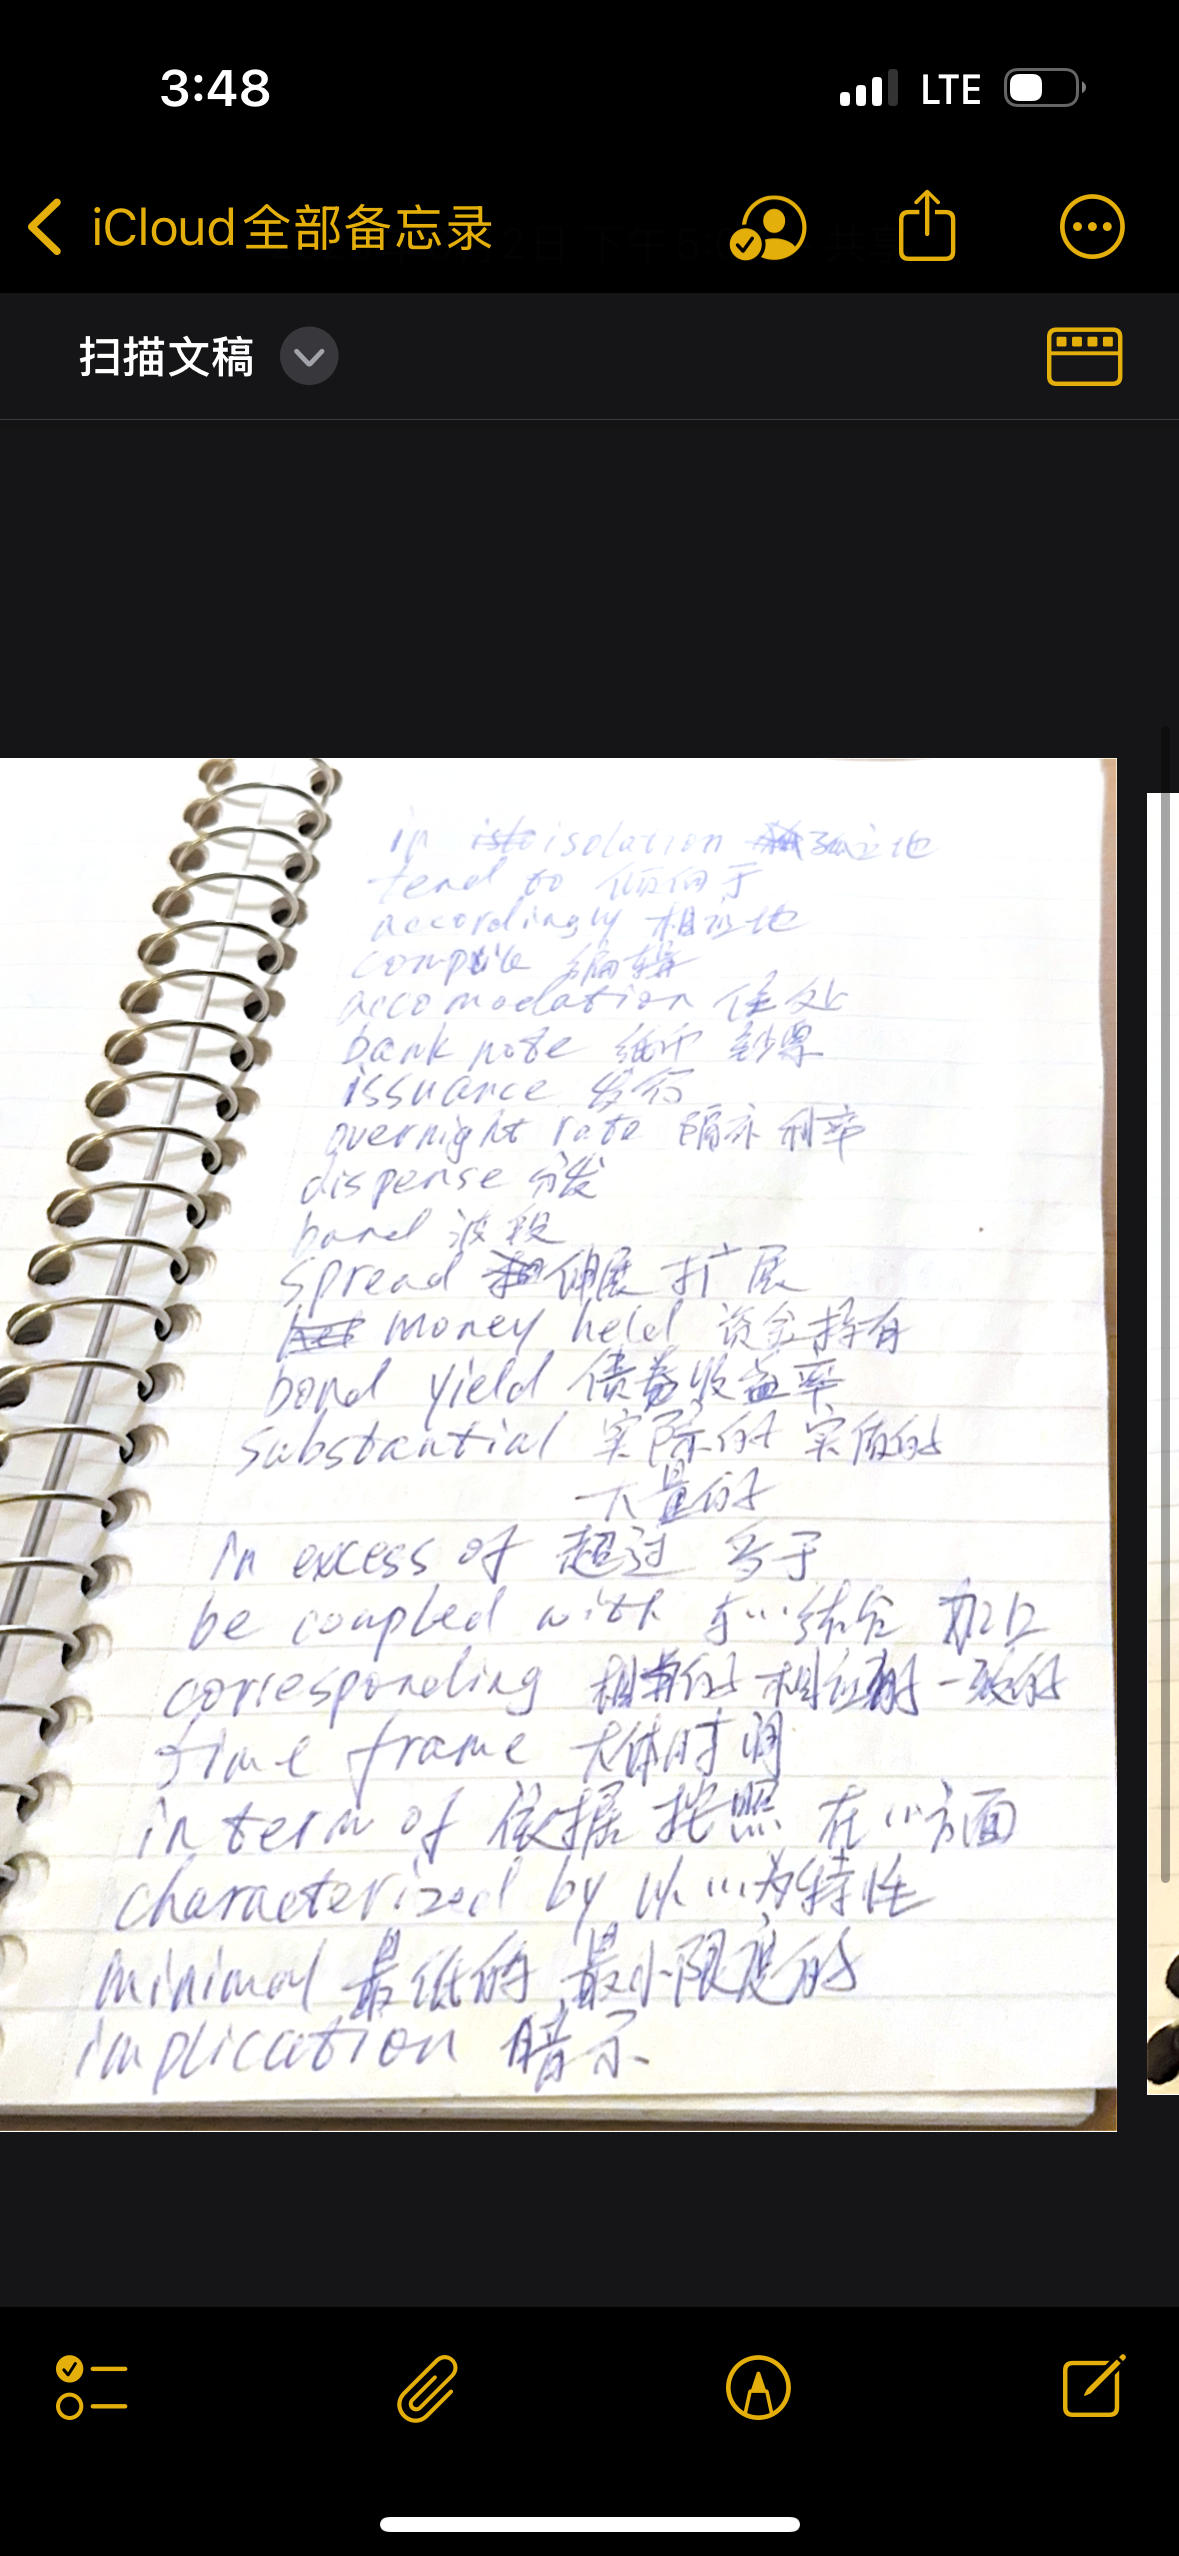 3:48 LTE
iCloud全部备忘录
扫描文稿
in isolation 孤立地
tend to 倾向于
accordingly 相应地
compile 编辑
accomodation 住处
bank note 纸币 钞票
issuance 发行
overnight rate 隔夜利率
dispense 分发
band 波段
spread 伸展 扩展
money held 资金持有
bond yield 债券收益率
substantial 实际的 实质的
大量的
in excess of 超过 多于
be coupled with 与…结合 加上
corresponding 相关的 相应的 一致的
time frame 大体时间
in term of 依据 按照 在…方面
characterized by 以…为特性
minimal 最低的 最小限度的
implication 暗示